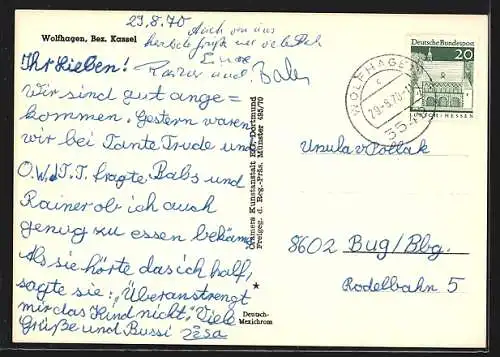 29.8.70
Auch von uns
herzliche
Eure
und Babs
Wolfhagen, Bez. Kassel
Ihr Lieben!
Wir sind gut ange=
kommen. Gestern waren
wir bei Tante Trude und
O.W. T.T. fragte Babs und
Rainer ob ich auch
genug zu essen bekäme
Als sie hörte das ich half,
sagte sie: „Überanstrengt
mir das Kind nicht". Viele
Grüße und Bussi
Cramers Kunstanstalt KG, Dortmund
Freigeg. d. Reg.-Präs. Münster
Deutsch-
Mexichrom
WOLFHAGEN
29.-8.70-
354
Deutsche Bundespost
20
LORSCH/HESSEN
Ursula v Pollak
8602 Bug/Bbg.
Rodelbahn 5